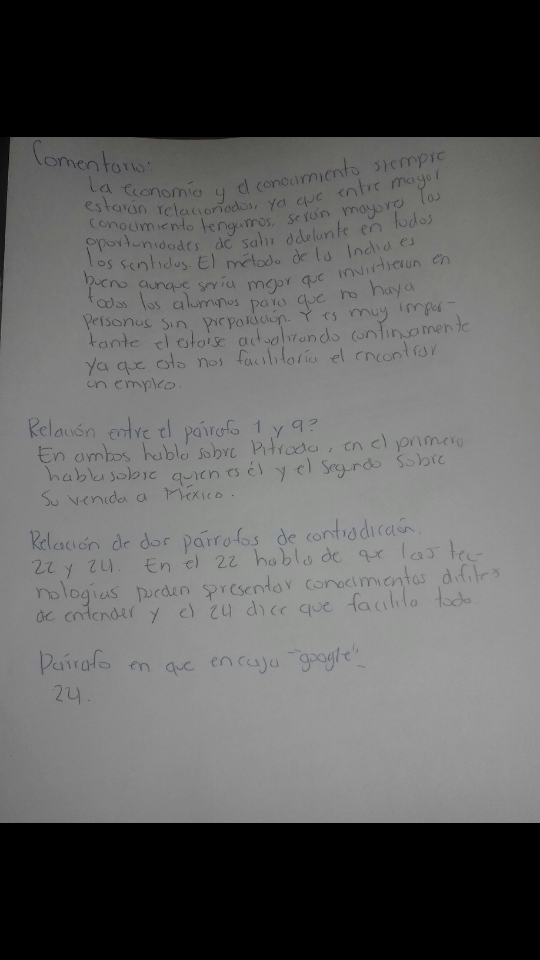 Comentario:
La economía y el conocimiento siempre
estarán relacionados, ya que entre mayor
conocimiento tengamos, serán mayores las
oportunidades de salir adelante en todos
los sentidos. El método de la India es
bueno aunque sería mejor que invirtieran en
todos los alumnos para que no haya
personas sin preparación. Y es muy impor-
tante el estarse actualizando continuamente
ya que esto nos facilitaría el encontrar
un empleo.
Relación entre el párrafo 1 y 9?
En ambos habla sobre Pitroda, en el primero
habla sobre quien es él y el segundo sobre
su venida a México.
Relación de dos párrafos de contradicción.
22 y 24. En el 22 habla de que las tec-
nologías pueden presentar conocimientos difiles
de entender y el 24 dice que facilita todo.
Párrafo en que encaja "google".
24.